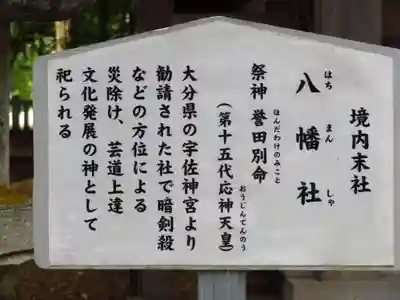 境内末社
八幡社
はちまんしゃ
祭神 誉田別命
ほんだわけのみこと
(第十五代応神天皇)
おうじんてんのう
大分県の宇佐神宮より
勧請された社で暗剣殺
などの方位による
災除け、芸道上達
文化発展の神として
祀られる